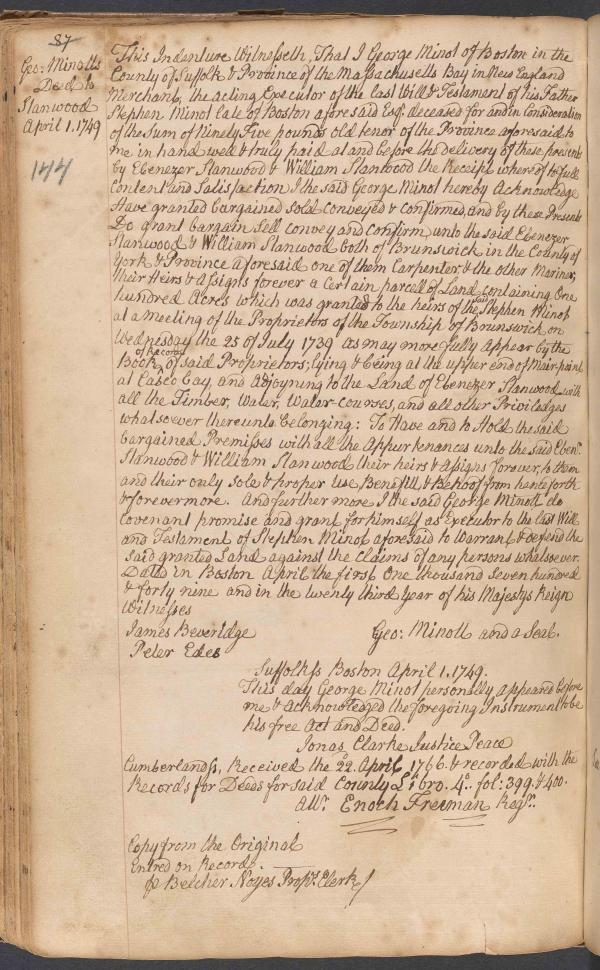 87
Geo: Minotts
Deed to
Stanwood
April 1. 1749
144
This Indenture Witnesseth, That I George Minot of Boston in the
County of Suffolk & Province of the Massachusetts Bay in New England
Merchant, the acting Executor of the last Will & Testament of his Father
Stephen Minot late of Boston aforesaid Esqr. deceased for and in Consideration
of the Sum of Ninety Five pounds old tenor of the Province aforesaid to
me in hand well & truly paid at and before the delivery of these presents
by Ebenezer Stanwood & William Stanwood the Receipt whereof to full
Content and Satisfaction I the said George Minot hereby Acknowledge
Have granted bargained sold conveyed & confirmed, and by these Presents
Do grant bargain Sell convey and confirm unto the said Ebenezer
Stanwood & William Stanwood both of Brunswick in the County of
York & Province aforesaid one of them Carpenter, & the other Mariner,
their Heirs & Assigns forever a Certain parcell of Land containing One
hundred Acres which was granted to the heirs of the said Stephen Minot
at a Meeting of the Proprietors of the Township of Brunswick on
Wednesday the 25 of July 1739 as may more fully Appear by the
Book of Records of said Proprietors; lying & being at the upper end of Mair point
at Casco bay, and Adjoyning to the Land of Ebenezer Stanwood with
all the Timber, Water, Water-courses, and all other Priviledges
whatsoever thereunto belonging: To Have and to Hold the said
bargained Premisses with all the Appurtenances unto the said Ebenr.
Stanwood & William Stanwood their heirs & Assigns forever, to them
and their only sole & proper Use, Benefitt & Behoof from henceforth
& forevermore. And further more I the said George Minott do
Covenant promise and grant for himself as Executor to the last Will
and Testament of Stephen Minot aforesaid to Warrant & defend the
said granted Land against the Claims of any persons whatsoever.
Dated in Boston April the first One thousand Seven hundred
& forty nine and in the twenty third Year of his Majestys Reign
Witnesses
James Beveridge Geo: Minott and a Seal.
Peter Edes
Suffolk ss Boston April 1. 1749.
This day George Minot personally appeared before
me & Acknowledged the foregoing Instrument to be
his free Act and Deed.
Jonas Clarke Justice Peace
Cumberland ss, Received the 22. April 1766. & recorded with the
Records for Deeds for said County Libro. 4o. fol: 399. & 400.
Attr. Enoch Freeman Regr.
Copy from the Original
Entred on Record
P Belcher Noyes Proprs. Clerk